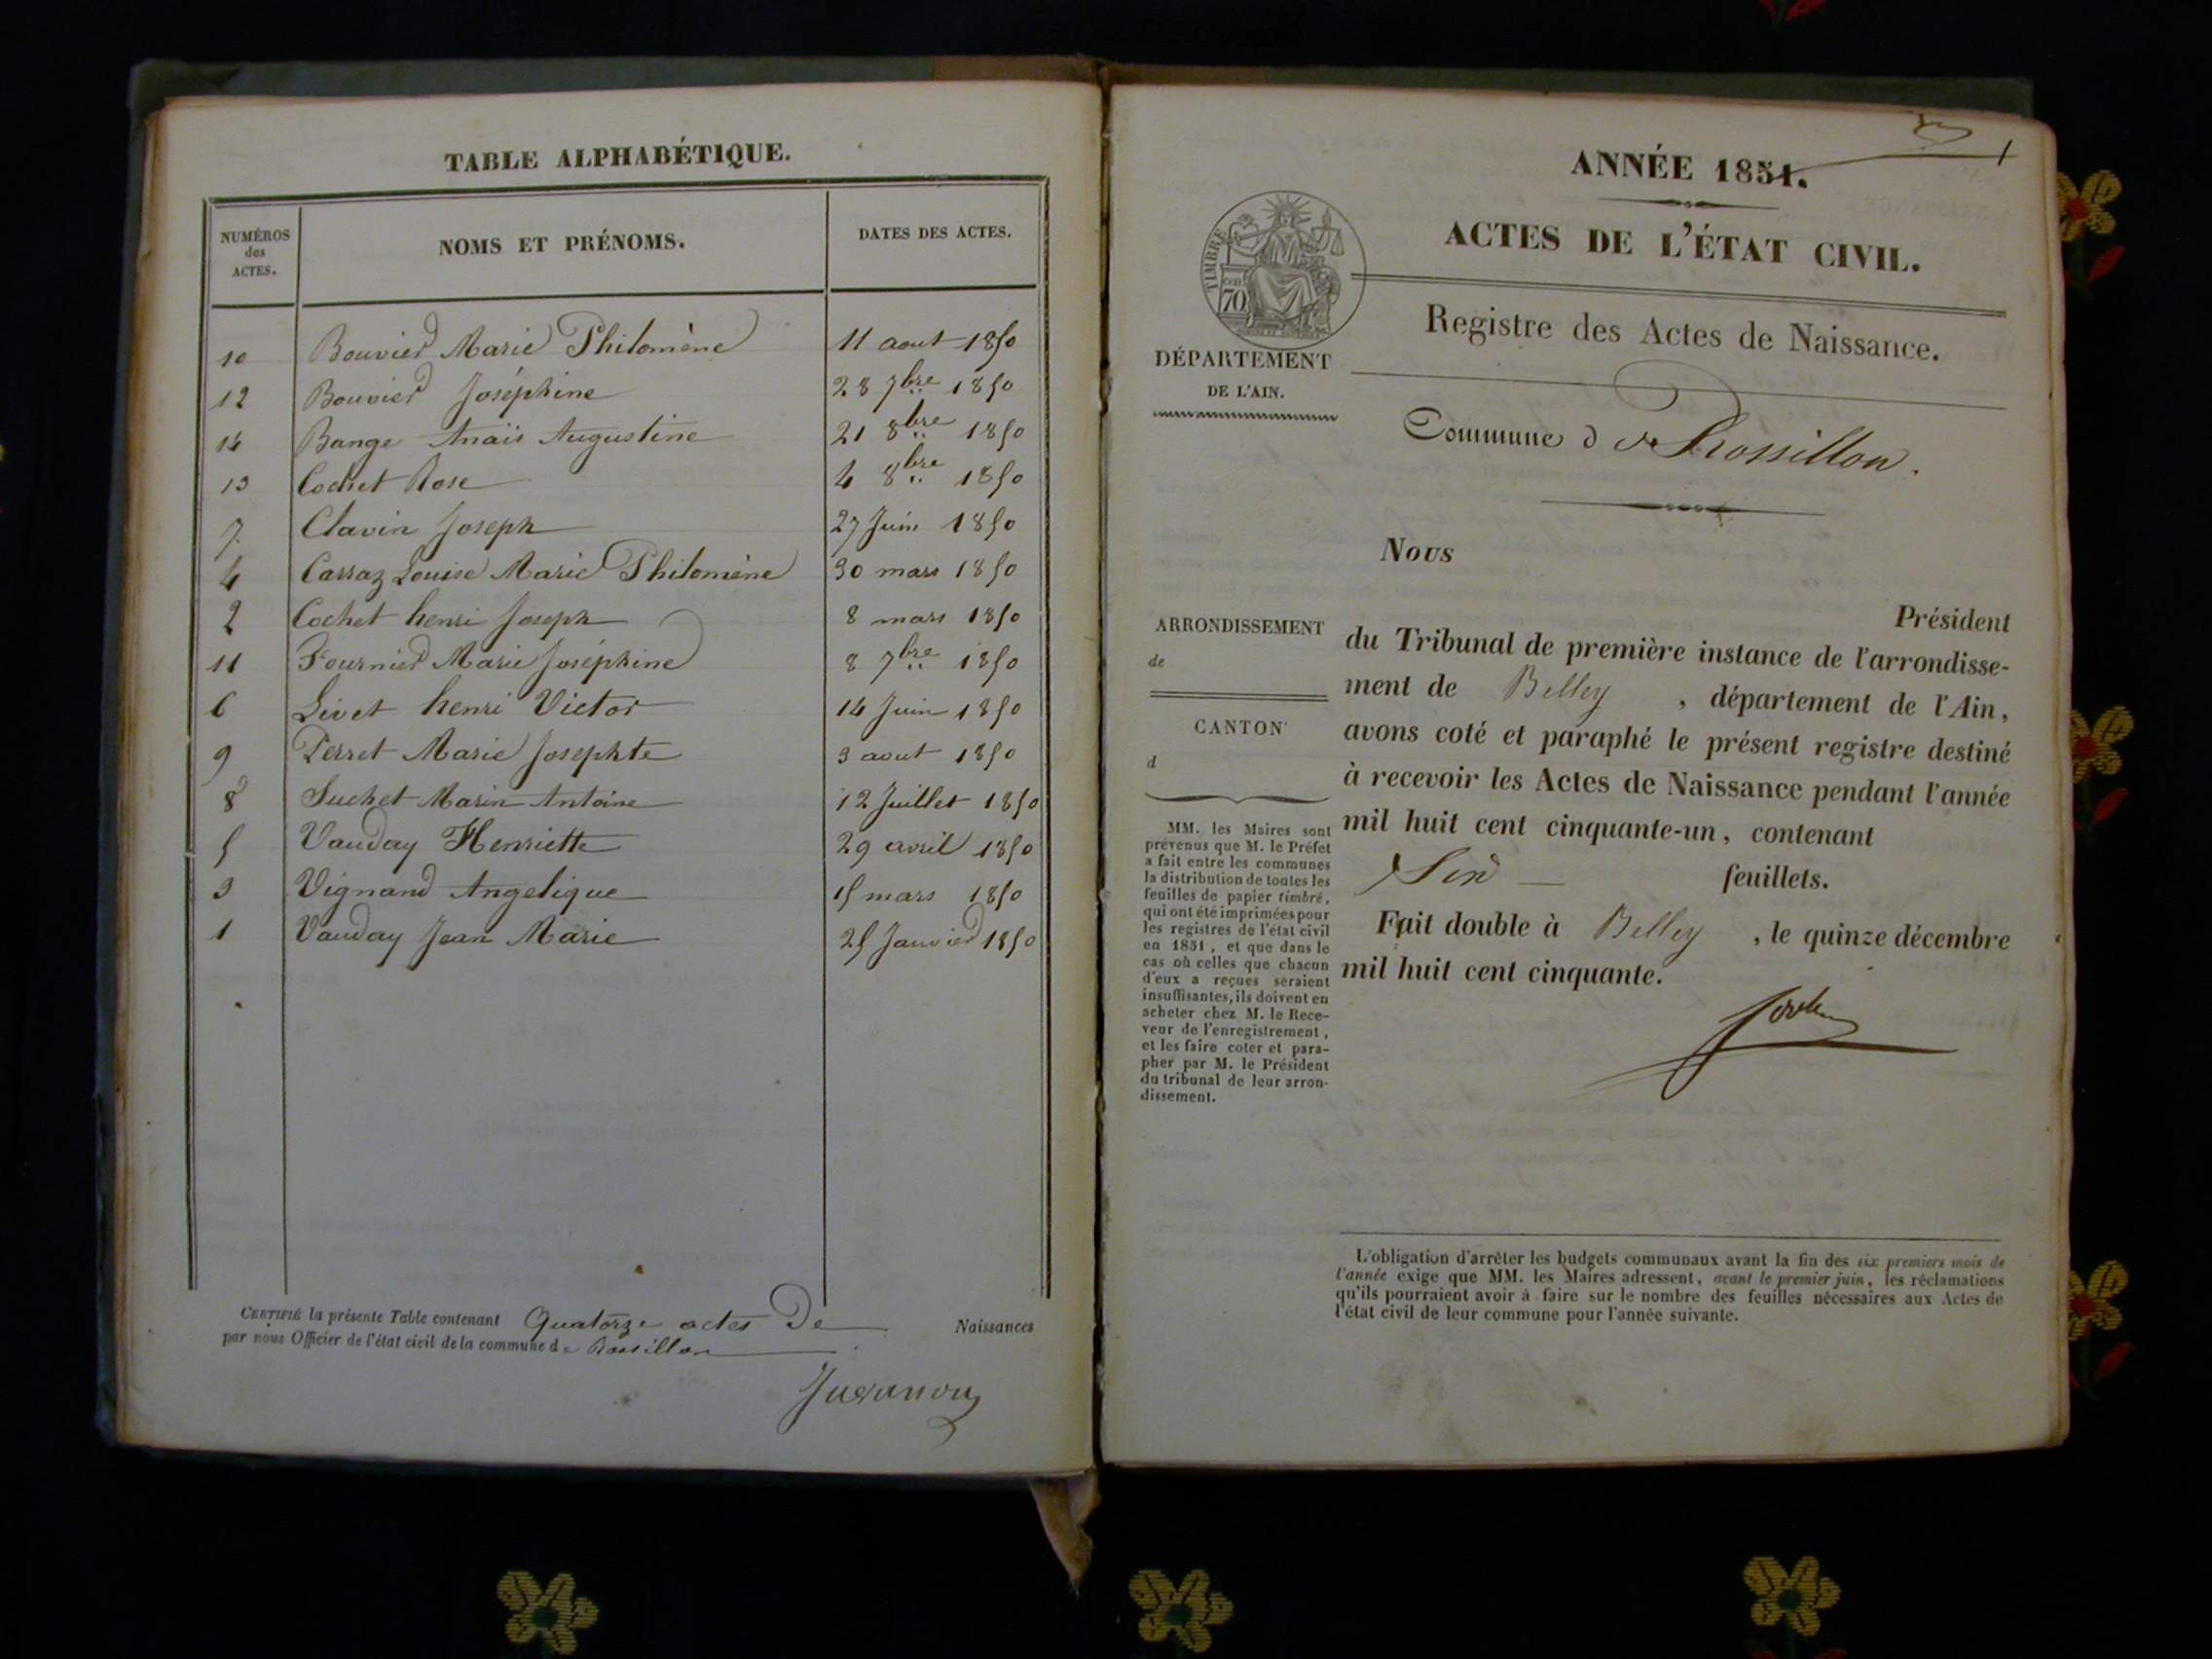 TABLE ALPHABÉTIQUE.
NUMÉROS des ACTES. NOMS ET PRÉNOMS. DATES DES ACTES.
10 Bouvier Marie Philomène 11 aout 1850
12 Bouvier Joséphine 28 7bre 1850
14 Bange Anaïs Augustine 21 8bre 1850
13 Cochet Rose 4 8bre 1850
7 Clavin Joseph 27 Juin 1850
4 Carraz Louise Marie Philomène 30 mars 1850
2 Cochet henri Joseph 8 mars 1850
11 Fournier Marie Joséphine 8 7bre 1850
6 Livet henri Victor 14 Juin 1850
9 Perret Marie Josephte 3 aout 1850
8 Suchet Marin Antoine 12 Juillet 1850
5 Vauday Henriette 29 avril 1850
3 Vignand Angelique 15 mars 1850
1 Vauday Jean Marie 25 Janvier 1850
CERTIFIÉ la présente Table contenant Quatorze actes De Naissances
par nous Officier de l'état civil de la commune de Rossillon
1
ANNÉE 1851.
ACTES DE L'ÉTAT CIVIL.
TIMBRE
70
Registre des Actes de Naissance.
DÉPARTEMENT
DE L'AIN.
Commune d e Rossillon.
Nous
Président
ARRONDISSEMENT
de
CANTON
d
du Tribunal de première instance de l'arrondisse-
ment de Belley , département de l'Ain,
avons coté et paraphé le présent registre destiné
à recevoir les Actes de Naissance pendant l'année
mil huit cent cinquante-un, contenant
Six feuillets.
Fait double à Belley , le quinze décembre
mil huit cent cinquante.
MM. les Maires sont
prévenus que M. le Préfet
a fait entre les communes
la distribution de toutes les
feuilles de papier timbré,
qui ont été imprimées pour
les registres de l'état civil
en 1851, et que dans le
cas où celles que chacun
d'eux a reçues seraient
insuffisantes, ils doivent en
acheter chez M. le Rece-
veur de l'enregistrement,
et les faire coter et para-
pher par M. le Président
du tribunal de leur arron-
dissement.
L'obligation d'arrêter les budgets communaux avant la fin des six premiers mois de
l'année exige que MM. les Maires adressent, avant le premier juin, les réclamations
qu'ils pourraient avoir à faire sur le nombre des feuilles nécessaires aux Actes de
l'état civil de leur commune pour l'année suivante.